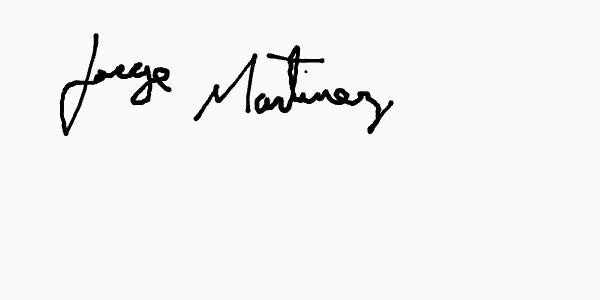 Jorge Martinez